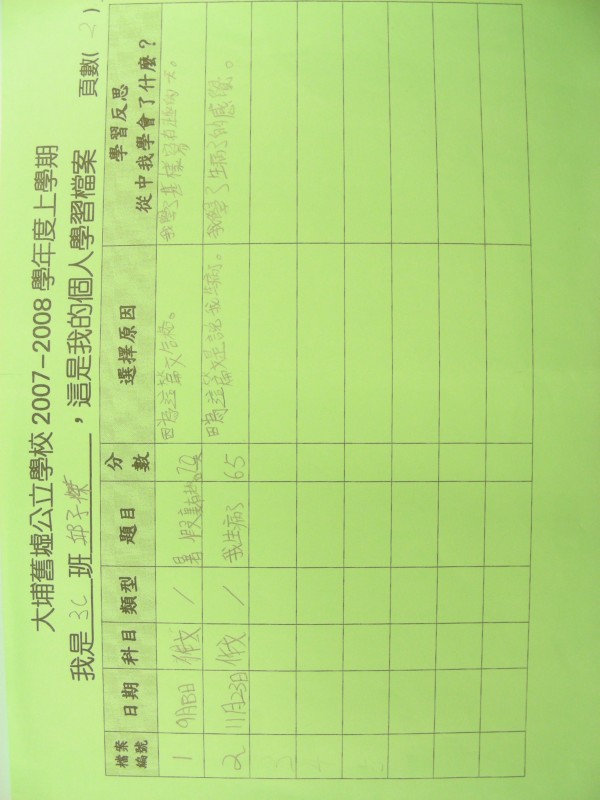 大埔舊墟公立學校 2007-2008 學年度上學期
我是 3C 班 邱子傑 ，這是我的個人學習檔案 頁數( 2 )
檔案編號 日期 科目 類型 題目 分數 選擇原因 學習反思 從中我學會了什麼？
1 9月 日 作文 / 暑假 70 因為這篇文合格。 我學了怎樣寫
2 11月23日 作文 / 我生病了 65 因為這篇文是說我生病了。 我學了生病了的感覺。